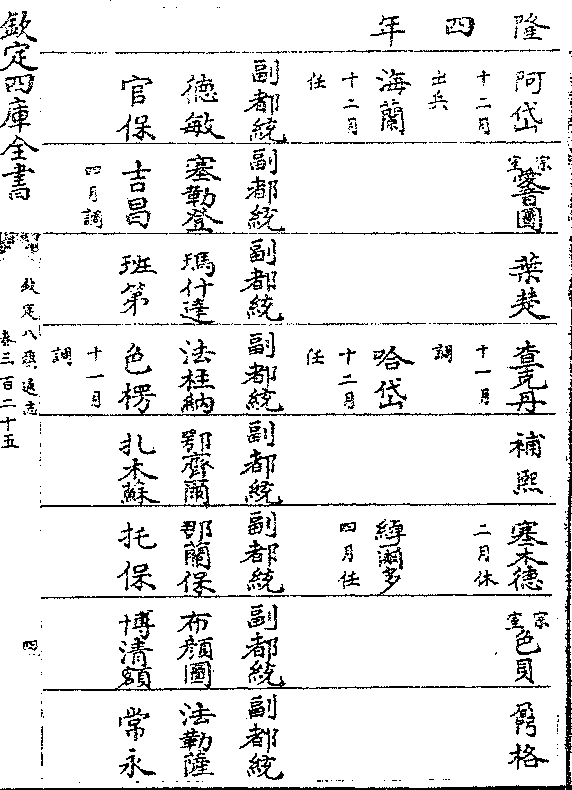 隆四年
阿岱
十二月
出兵
海蘭
十二月
任
副都統
德敏
官保
宗室愛音圖
副都統
塞勒登
吉昌
四月調
葉楚
副都統
瑪什達
班第
查克丹
十一月
調
哈岱
十二月
任
副都統
法柱納
色楞
十一月
調
補熙
副都統
鄂齊爾
扎木蘇
塞木德
二月休
綽爾多
四月任
副都統
那蘭保
托保
宗室色貝
副都統
布顏圖
博清額
格
副都統
法勒薩
常永
欽定四庫全書
欽定八旗通志
卷三百二十五
四